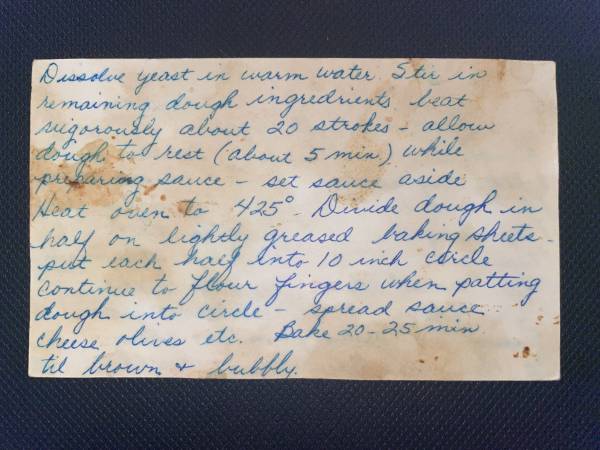 Dissolve yeast in warm water. Stir in
remaining dough ingredients. beat
vigorously about 20 strokes - allow
dough to rest (about 5 min), while
preparing sauce - set sauce aside
Heat oven to 425° - Divide dough in
half on lightly greased baking sheets -
put each half into 10 inch circle
continue to flour fingers when patting
dough into circle - spread sauce
cheese olives etc. Bake 20-25 min.
til brown & bubbly.